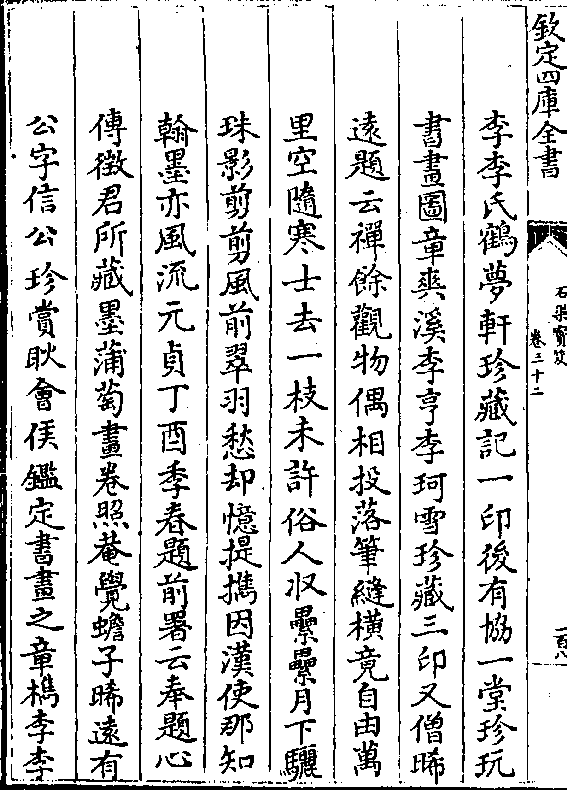 欽定四庫全書
石渠寳笈
卷三十二
一百八
李李氏鶴夢軒珍藏記一印後有協一堂珍玩
書畫圖章爽溪李亨李珂雪珍藏三印又僧晞
逺題云禪餘觀物偶相投落筆縫橫竟自由萬
里空隨寒士去一枝未許俗人收纍纍月下驪
珠影剪剪風前翠羽愁却憶提攜因漢使那知
翰墨亦風流元貞丁酉季春題前署云奉題心
傳徴君所藏墨蒲萄畫卷照菴覺蟾子晞逺有
公字信公珍賞耿會侯鑑定書畫之章檇李李